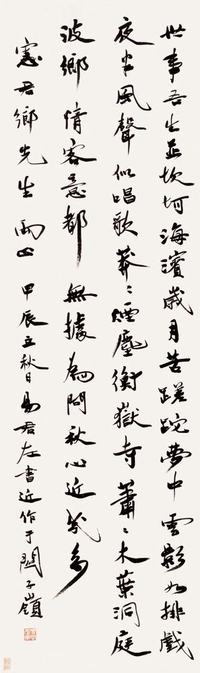 世事吾生并坎坷海濱歲月苦蹉跎夢中雲影如排戲
夜半風聲似唱歌莽々煙塵衡嶽寺蕭々木葉洞庭
波鄉情客意都無據為問秋心近幾多
憲君鄉先生雨正 甲辰立秋日易君左書近作于關子嶺